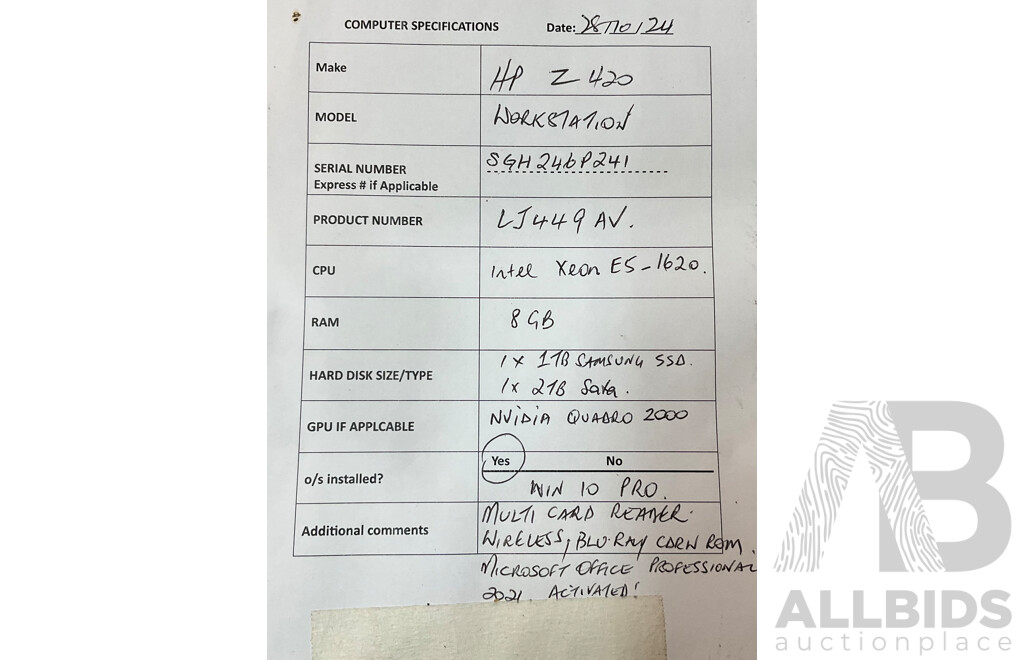 COMPUTER SPECIFICATIONS Date: 28/10/24
Make HP Z 420
MODEL WORKSTATION
SERIAL NUMBER SGH246P241
Express # if Applicable
PRODUCT NUMBER LJ449AV.
CPU Intel Xeon E5-1620.
RAM 8 GB
HARD DISK SIZE/TYPE 1x 1TB SAMSUNG SSD.
1x 2TB Sata.
GPU IF APPLCABLE NVIDIA QUADRO 2000
o/s installed? Yes No
WIN 10 PRO.
Additional comments MULTI CARD READER.
WIRELESS, BLU-RAY CDRW ROM.
MICROSOFT OFFICE PROFESSIONAL
2021. ACTIVATED!
AB
ALLBIDS
auctionplace